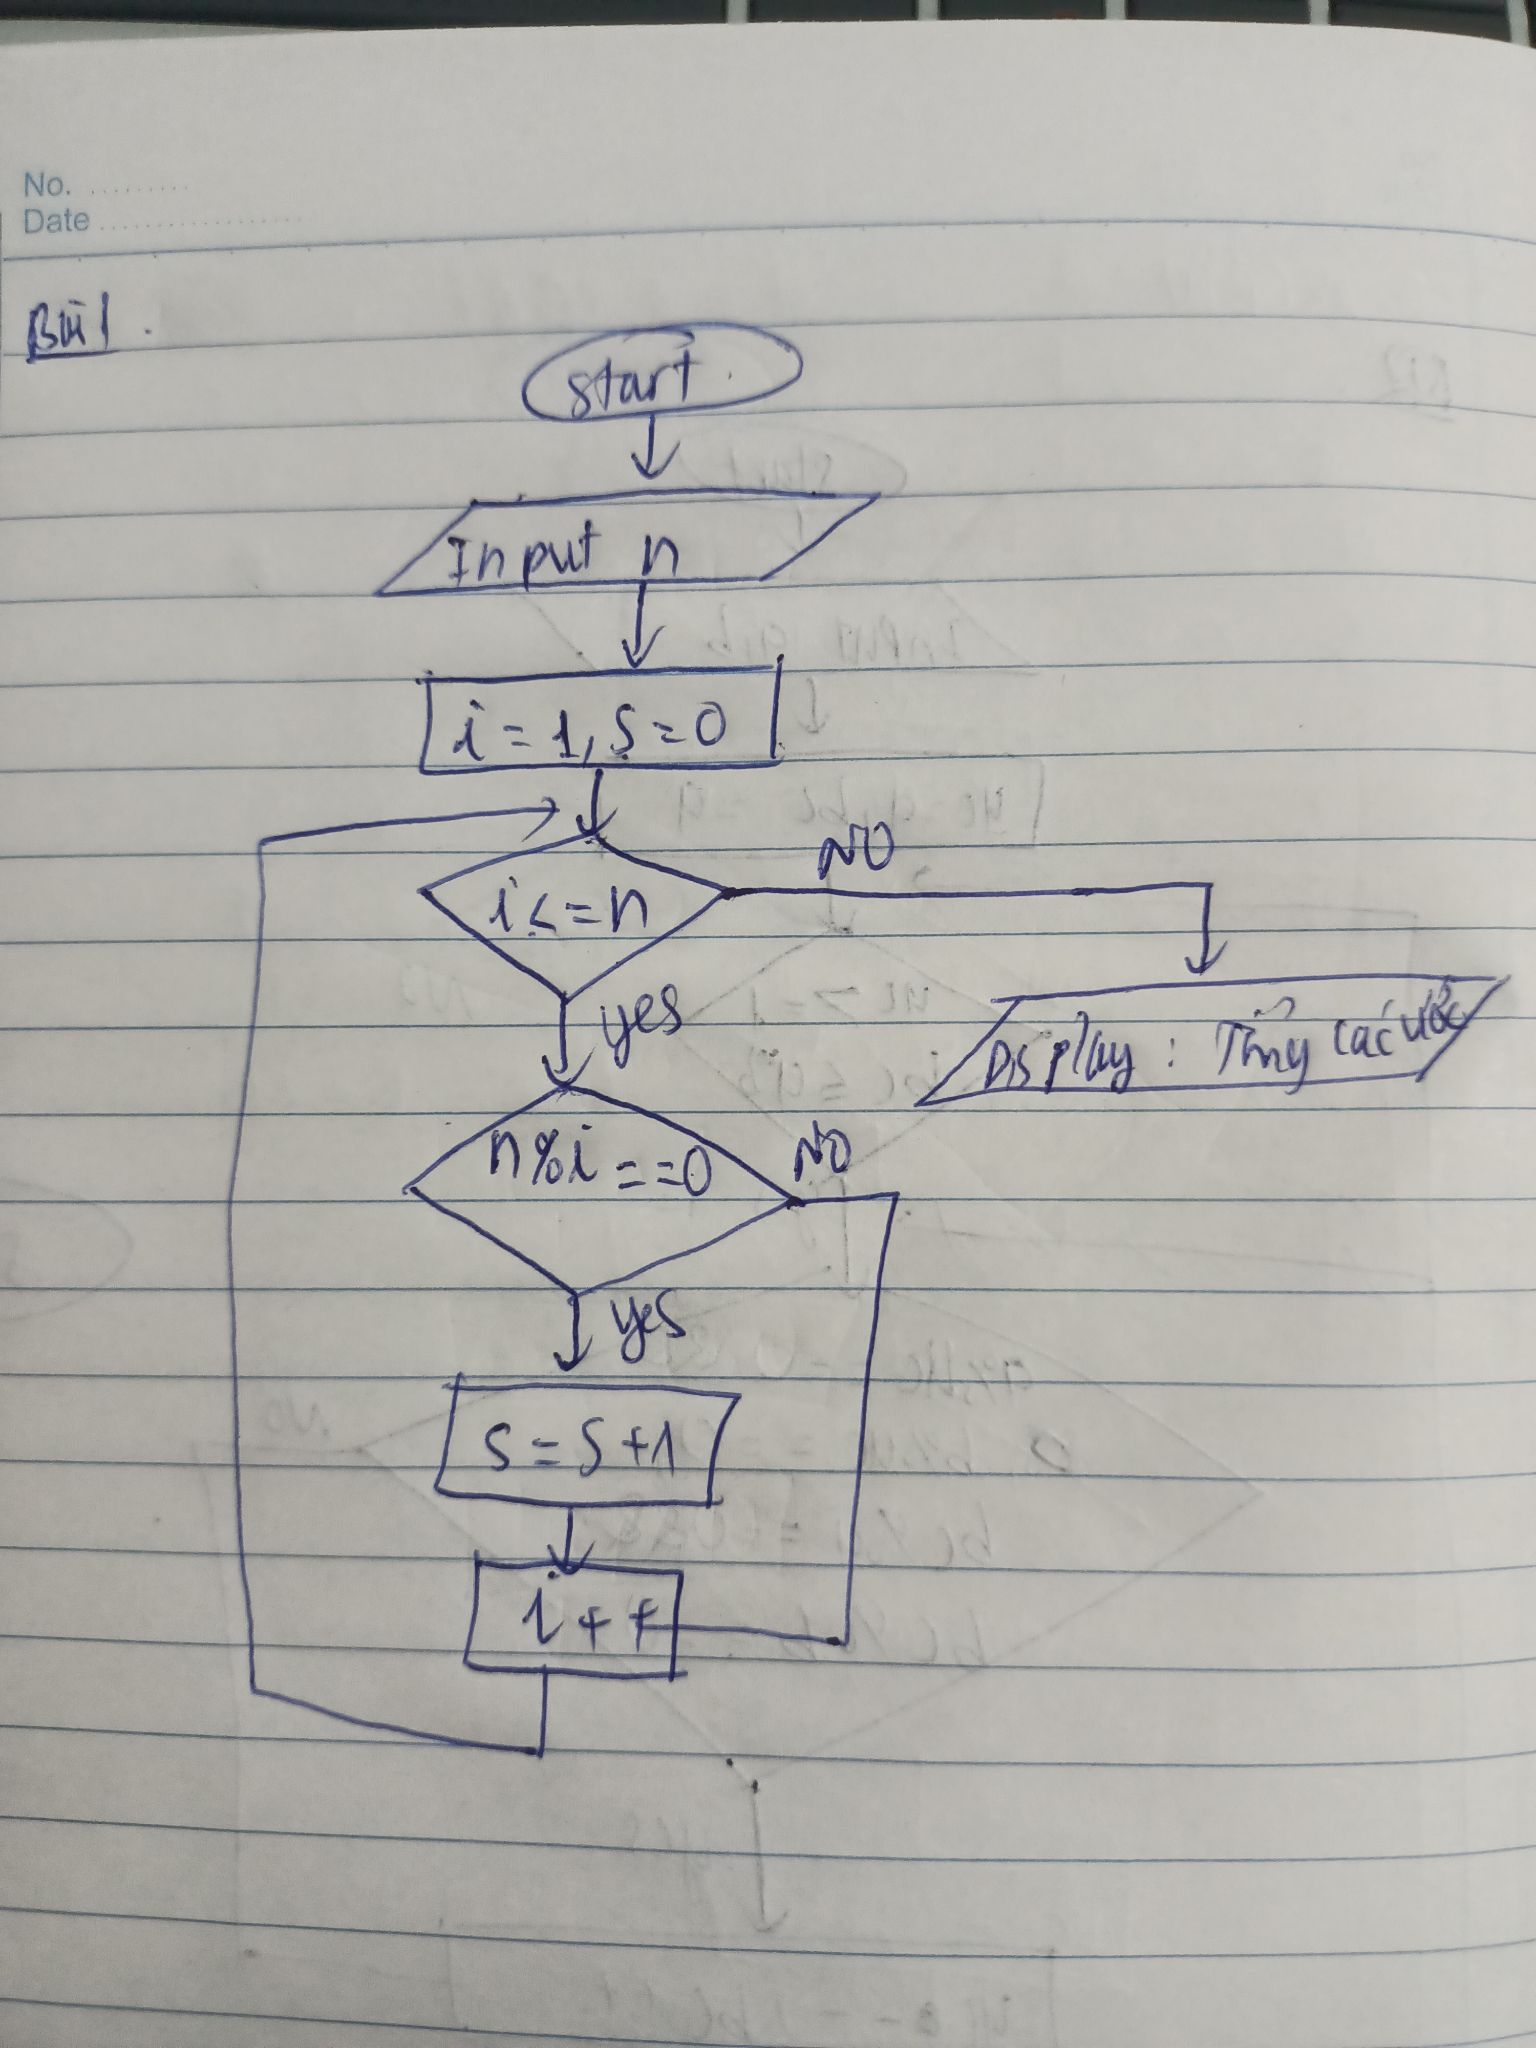 No.
Date
Bài 1.
start
Input n
i = 1, S = 0
i <= n
NO
yes
Display: Tổng các ước
n % i == 0
NO
yes
S = S + 1
i + +